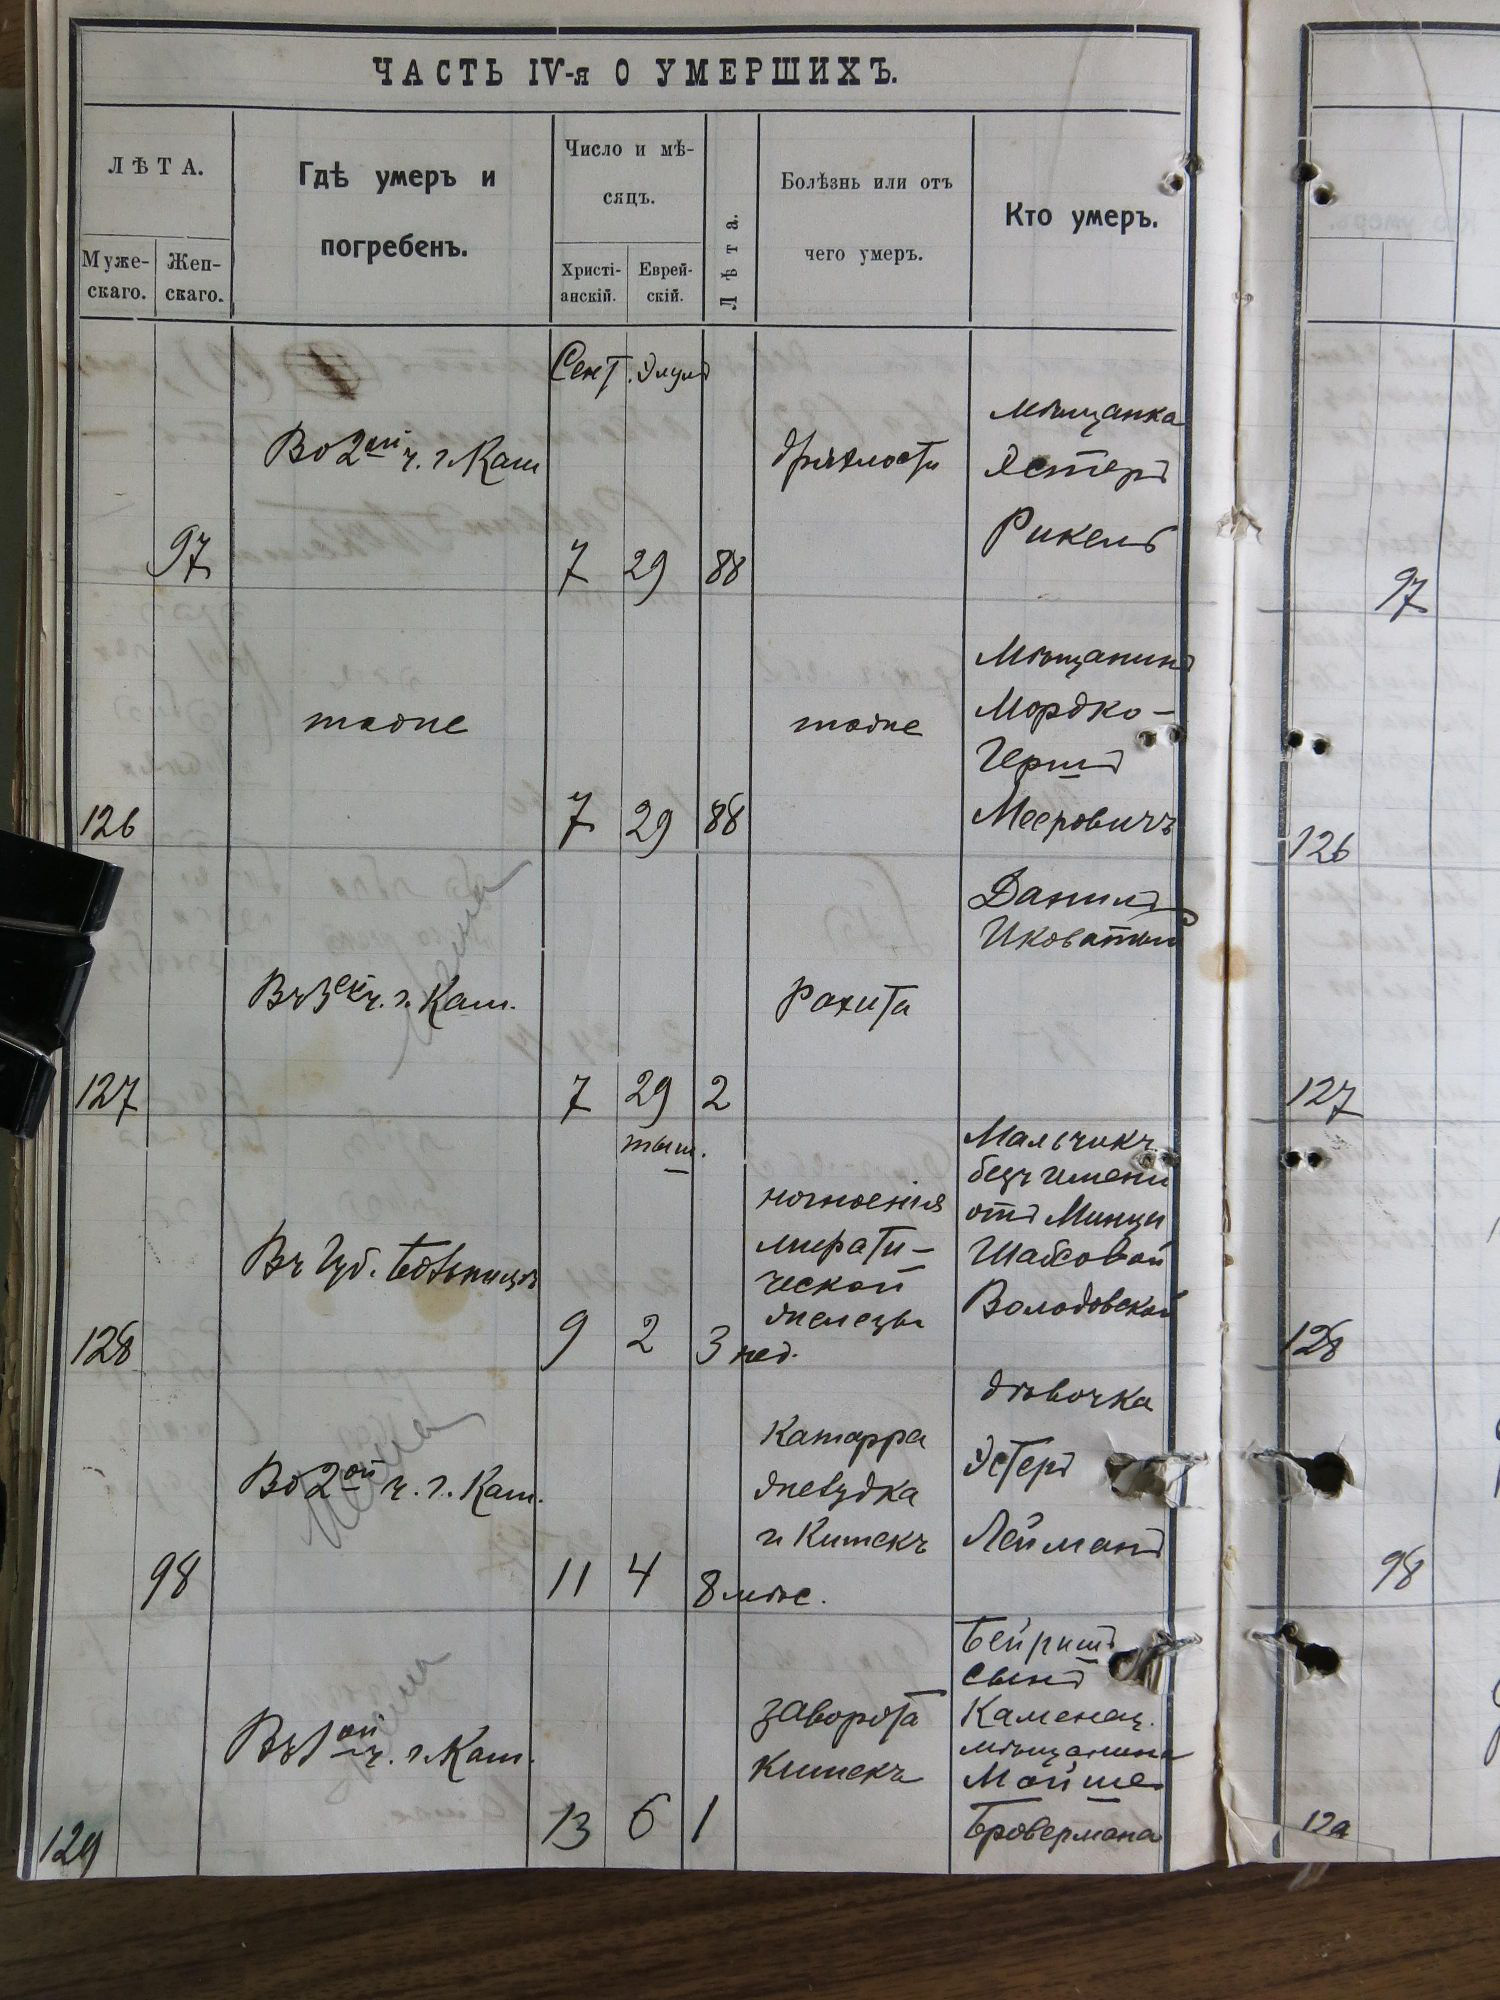 ЧАСТЬ IV-я О УМЕРШИХЪ.
ЛѢТА.
Муже-
скаго.
Жен-
скаго.
Гдѣ умеръ и
погребенъ.
Число и мѣ-
сяцъ.
Христі-
анскій.
Еврей-
скій.
Лѣта.
Болѣзнь или отъ
чего умеръ.
Кто умеръ.
Сент. Элулъ
Во 2ой ч. г. Кам
97
7 29 88
дряхлости
мѣщанка
Эстеръ
Рикель
97
тоже
126
7 29 88
тоже
Мѣщанинъ
Мордко-
Гершъ
Мееровичъ
126
Въ 3ей ч. г. Кам.
127
7 29 2
Рахита
Данилъ
Иковатый
127
тыш.
Въ Губ. Больницѣ
128
9 2 3 нед.
ческой
железы
Мальчикъ
безъ имени
отъ Минци
Шабсовой
Володовской
128
Во 2ой ч. г. Кам.
98
11 4 8 мѣс.
Катарра
желудка
и Кишекъ
дѣвочка
Эстеръ
Лейманъ
98
Въ 1ой ч. г. Кам.
129
13 6 1
заворота
Кишекъ
Бейришъ
сынъ
Каменец.
мѣщанина
Мойше
Бровермана
129